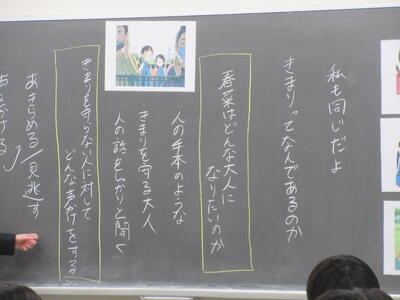 私も同じだよ
きまりってなんであるのか
春菜はどんな大人に
なりたいのか
・人の手本のような
・きまりを守る大人
・人の話をしっかりと聞く
きまりを守らない人に対して
どんな声かけをする
あきらめる/見逃す